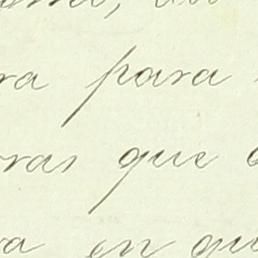 ra para
ras que
a en qu